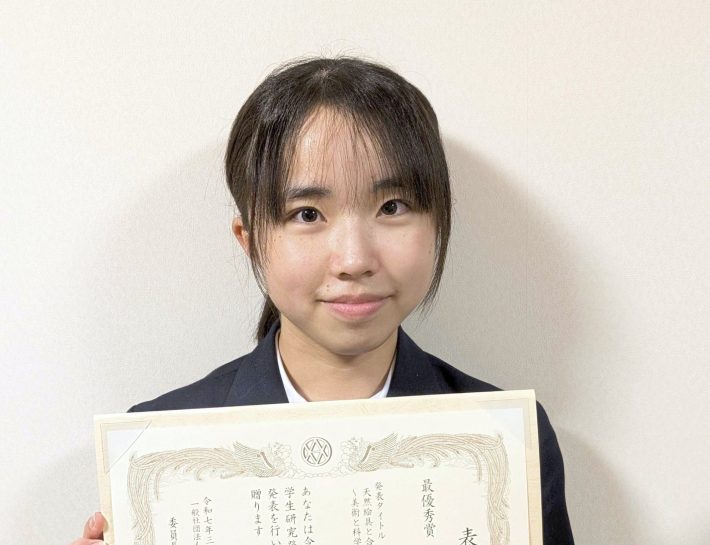 表
最優秀賞
発表タイトル
天然絵具と合
～美術と科学
あなたは今
学生研究発
発表を行い
贈ります
令和七年三
一般社団法人
委員長